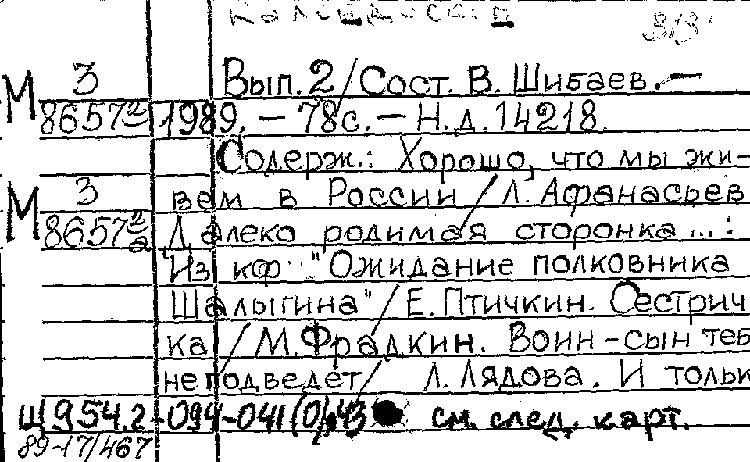 313
М 3 Вып. 2 / Сост. В. Шибаев. —
8657 1989. — 78с. — Н.д. 14218.
Содерж.: Хорошо, что мы жи-
М 3 вем в России / Л. Афанасьев
8657 Далеко родимая сторонка ... :
Из кф "Ожидание полковника
Шалыгина" / Е. Птичкин. Сестрич
ка / М. Фрадкин. Воин - сын теб
не подведет / Л. Лядова. И тольк
Щ954.2-094-041(0) см. след. карт.
89-17/467